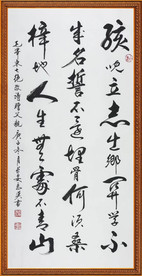 孩兒立志出鄉關學不
成名誓不還埋骨何須桑
梓地人生無處不青山
毛澤東七絕改詩贈父親 庚子 月 書